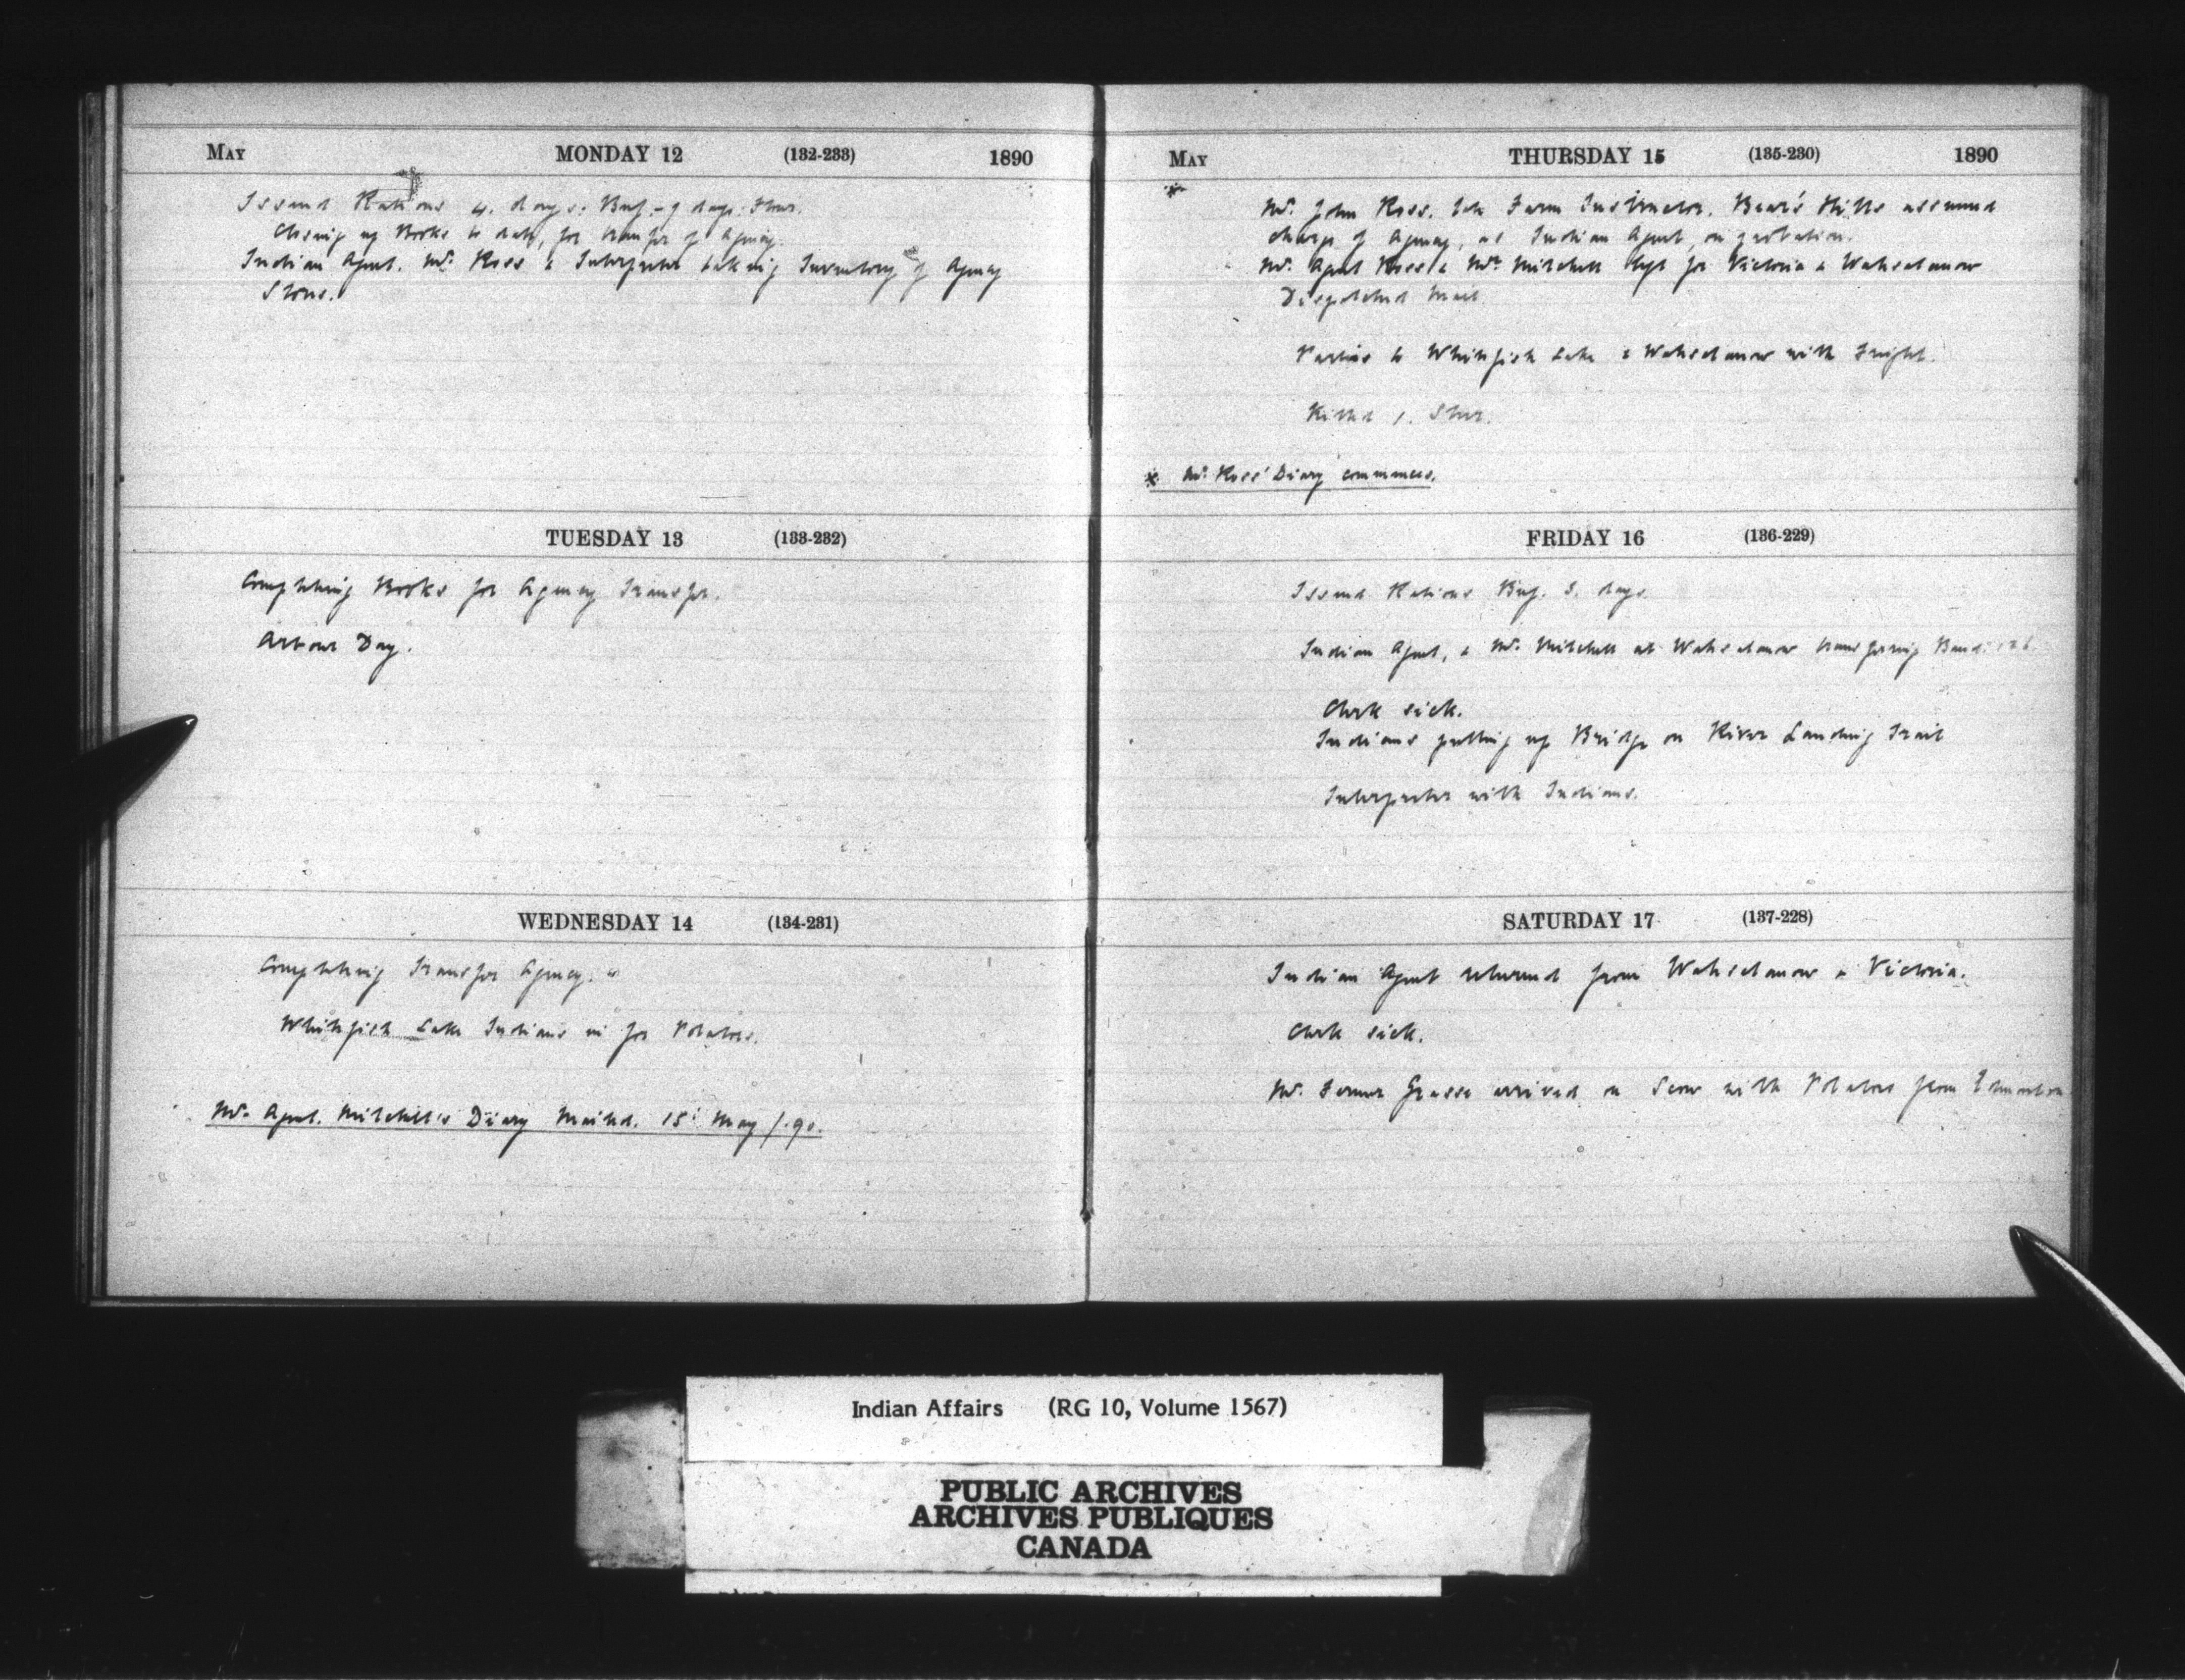 May MONDAY 12 (132-233) 1890
Issued Rations 4. days: Beef - 7 days: Flour.
Closing up Books to date, for transfer of Agency.
Indian Agent. Mr. Ross & Interpreter taking Inventory of Agency
Stores.
TUESDAY 13 (133-232)
Completing Books for Agency Transfer.
Arbour Day.
WEDNESDAY 14 (134-231)
Completing Transfer Agency.
Whitefish Lake Indians in for Potatoes.
Mr. Agent. Mitchell's Diary Mailed. 15: May /.90.
May THURSDAY 15 (135-230) 1890
*
Mr. John Ross. late Farm Instructor. Bear's Hills assumed
charge of Agency, as Indian Agent, on probation.
Mr. Agent Ross & Mr. Mitchell left for Victoria & Wahsatanow
Dispatched Mail.
Parties to Whitefish Lake & Wahsatanow with Freight.
Killed 1. Steer.
* Mr. Ross' Diary commences.
FRIDAY 16 (136-229)
Issued Rations Beef. 3. days.
Indian Agent, & Mr. Mitchell at Wahsatanow transferring Band
Clerk sick.
Indians putting up Bridge on River Landing Trail
Interpreter with Indians.
SATURDAY 17 (137-228)
Indian Agent returned from Wahsatanow & Victoria.
Clerk sick.
Mr. Farmer Grasse arrived on Scow with Potatoes from Edmonton
Indian Affairs (RG 10, Volume 1567)
PUBLIC ARCHIVES
ARCHIVES PUBLIQUES
CANADA